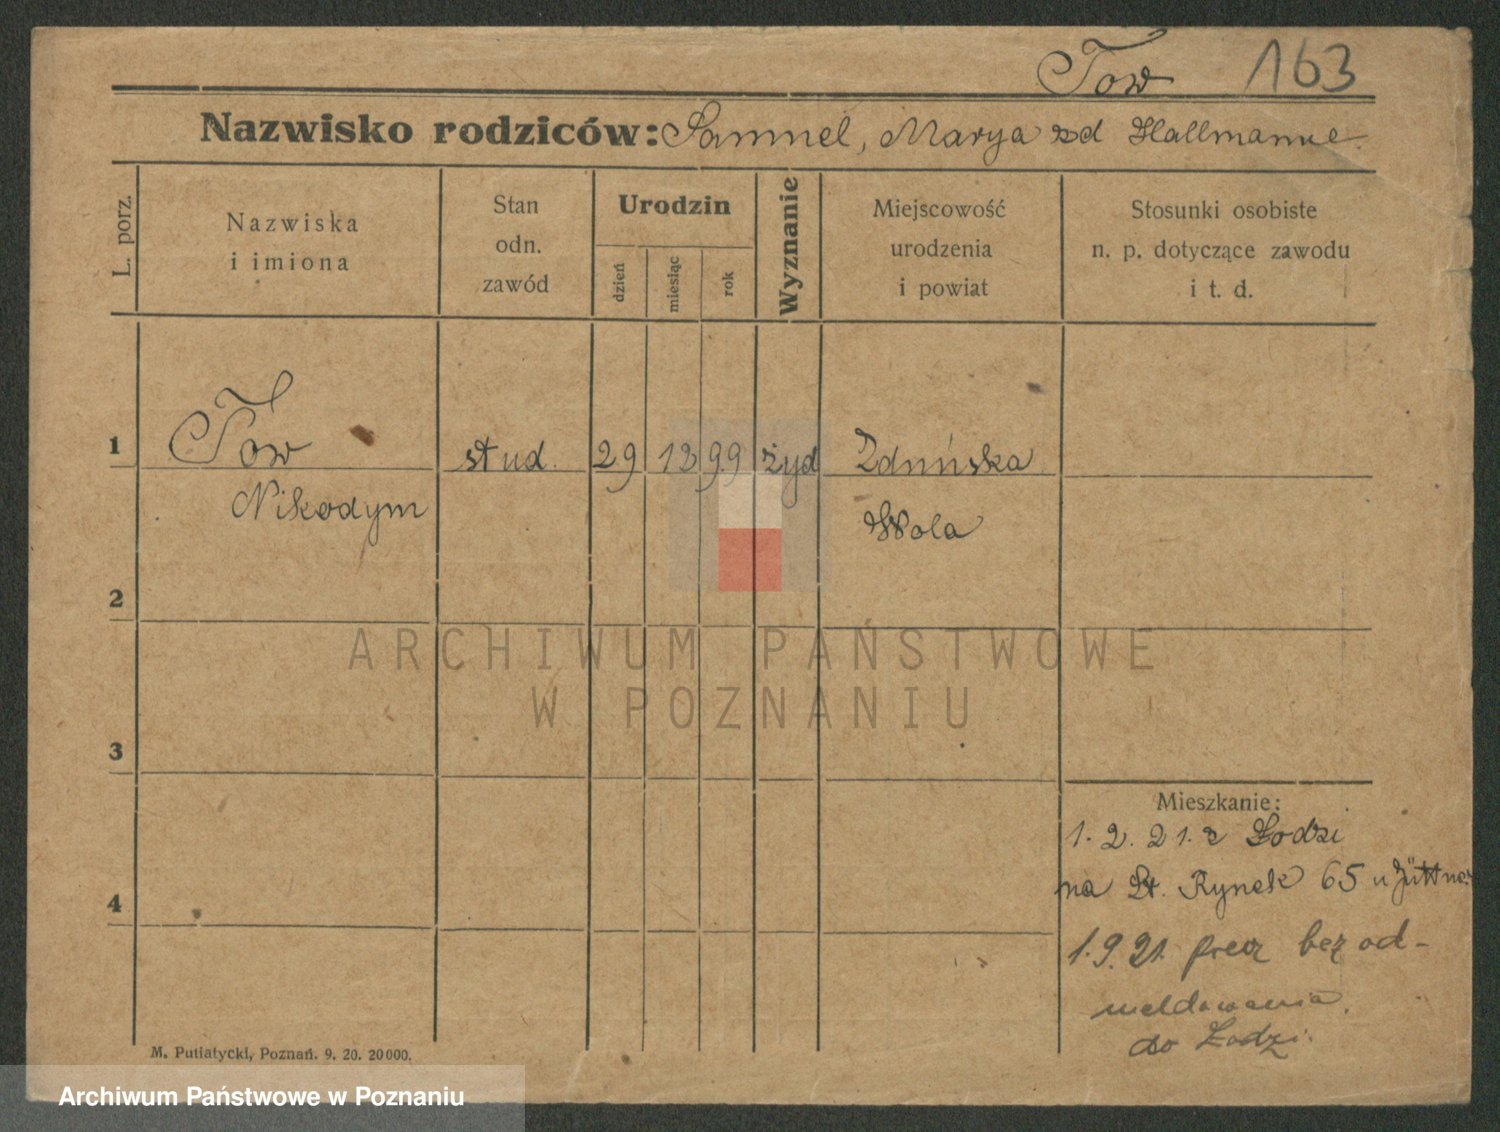 Tow 163
Nazwisko rodziców: Samuel, Marya zd Hallmanne
L. porz.
Nazwiska
i imiona
Stan
odn.
zawód
Urodzin
dzień
miesiąc
rok
Wyznanie
Miejscowość
urodzenia
i powiat
Stosunki osobiste
n. p. dotyczące zawodu
i t. d.
1 Tow stud. 29 12 99 żyd Zduńska
Nikodym Wola
2
ARCHIWUM PAŃSTWOWE
W POZNANIU
3
Mieszkanie:
1. 2. 21. z Łodzi
na St. Rynek 65 u Jüttner
4
1.9.21. precz bez od-
meldowania.
do Łodzi.
M. Putiatycki, Poznań. 9. 20. 20000.
Archiwum Państwowe w Poznaniu